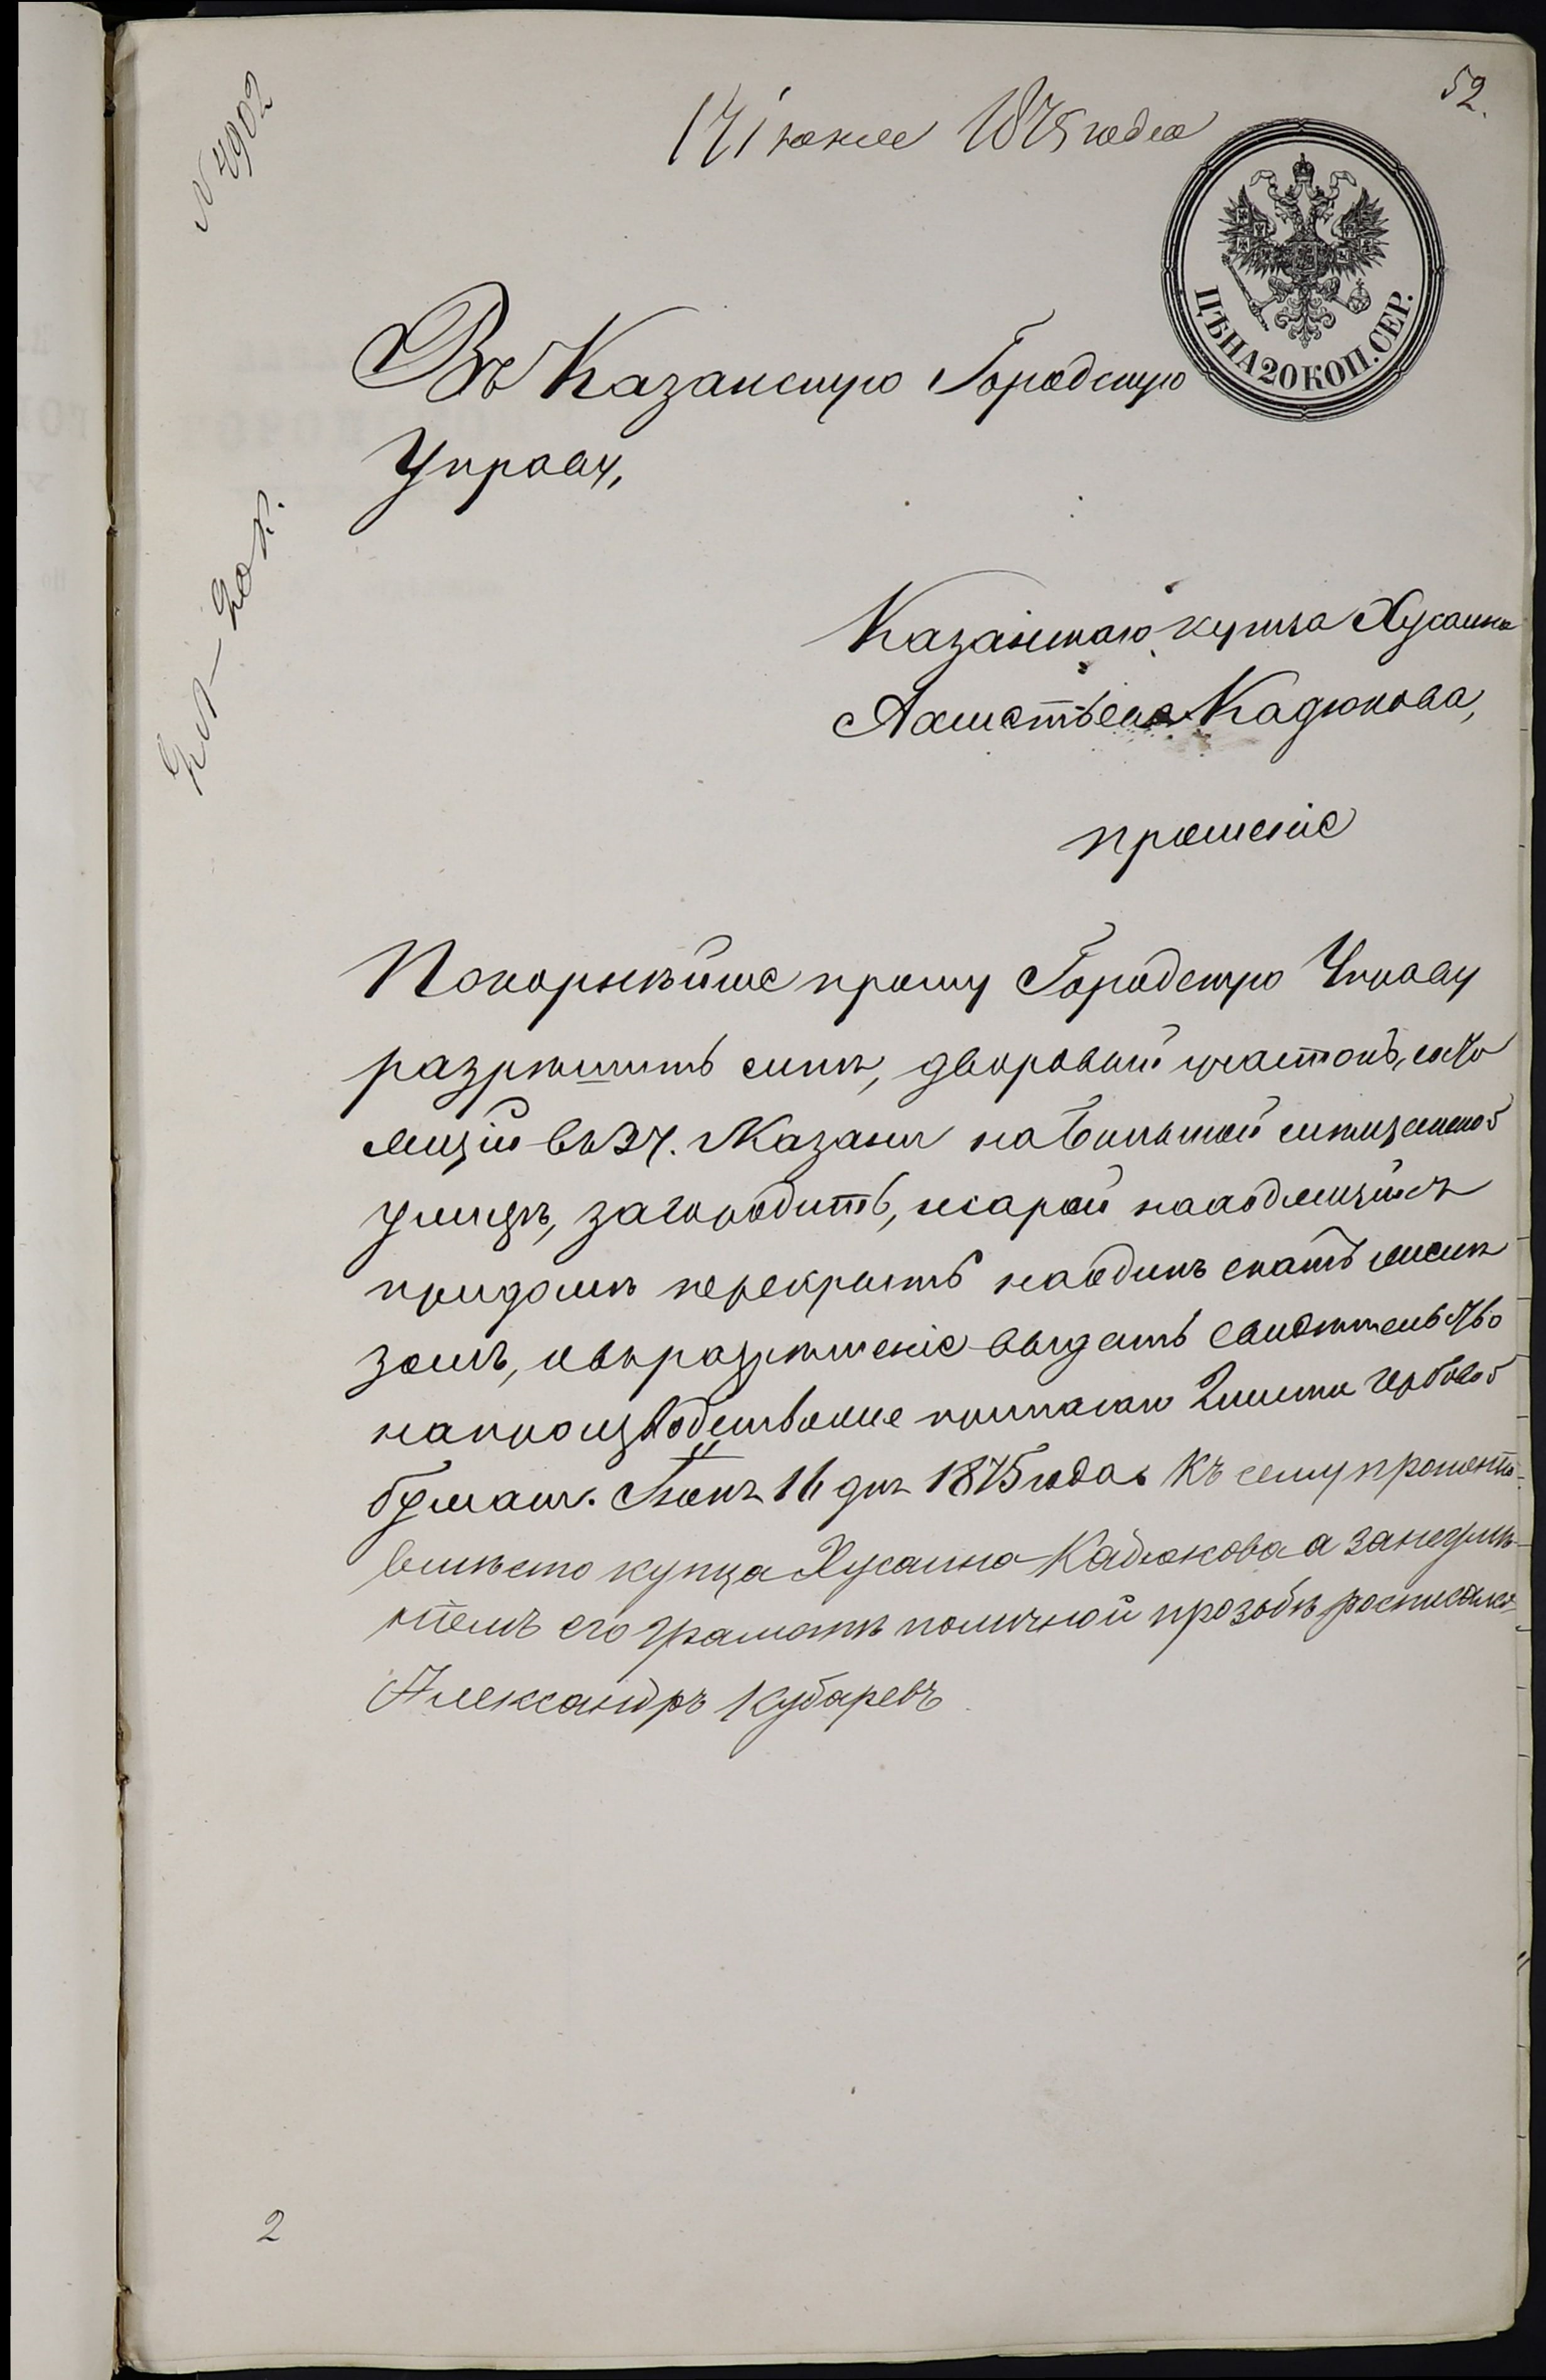 52.
17 іюня 1875 года
N 4902
ЦѢНА 20 КОП. СЕР.
Въ Казанскую Городскую
Управу,
Казанскаго купца Хусаина
Ахметьева Кадюкова,
прошеніе
Покорнѣйше прошу Городскую Управу
разрѣшить мнѣ, дворовый участокъ, состо
ящій въ 2 ч. г. Казани на Большой мѣщанской
улицѣ, загородить, сарай находящійся
при домѣ перекрыть на одинъ скатъ
зомъ, и въ разрѣшеніе выдать свидѣтельство
на производство прилагаю 2 листа гербовой
бумаги. Іюня 16 дня 1875 года. Къ сему прошенію
вмѣсто купца Хусаина Кадюкова а за неумѣ-
ніемъ его грамотѣ по личной прозьбѣ росписался
Александръ Кубаревъ
2